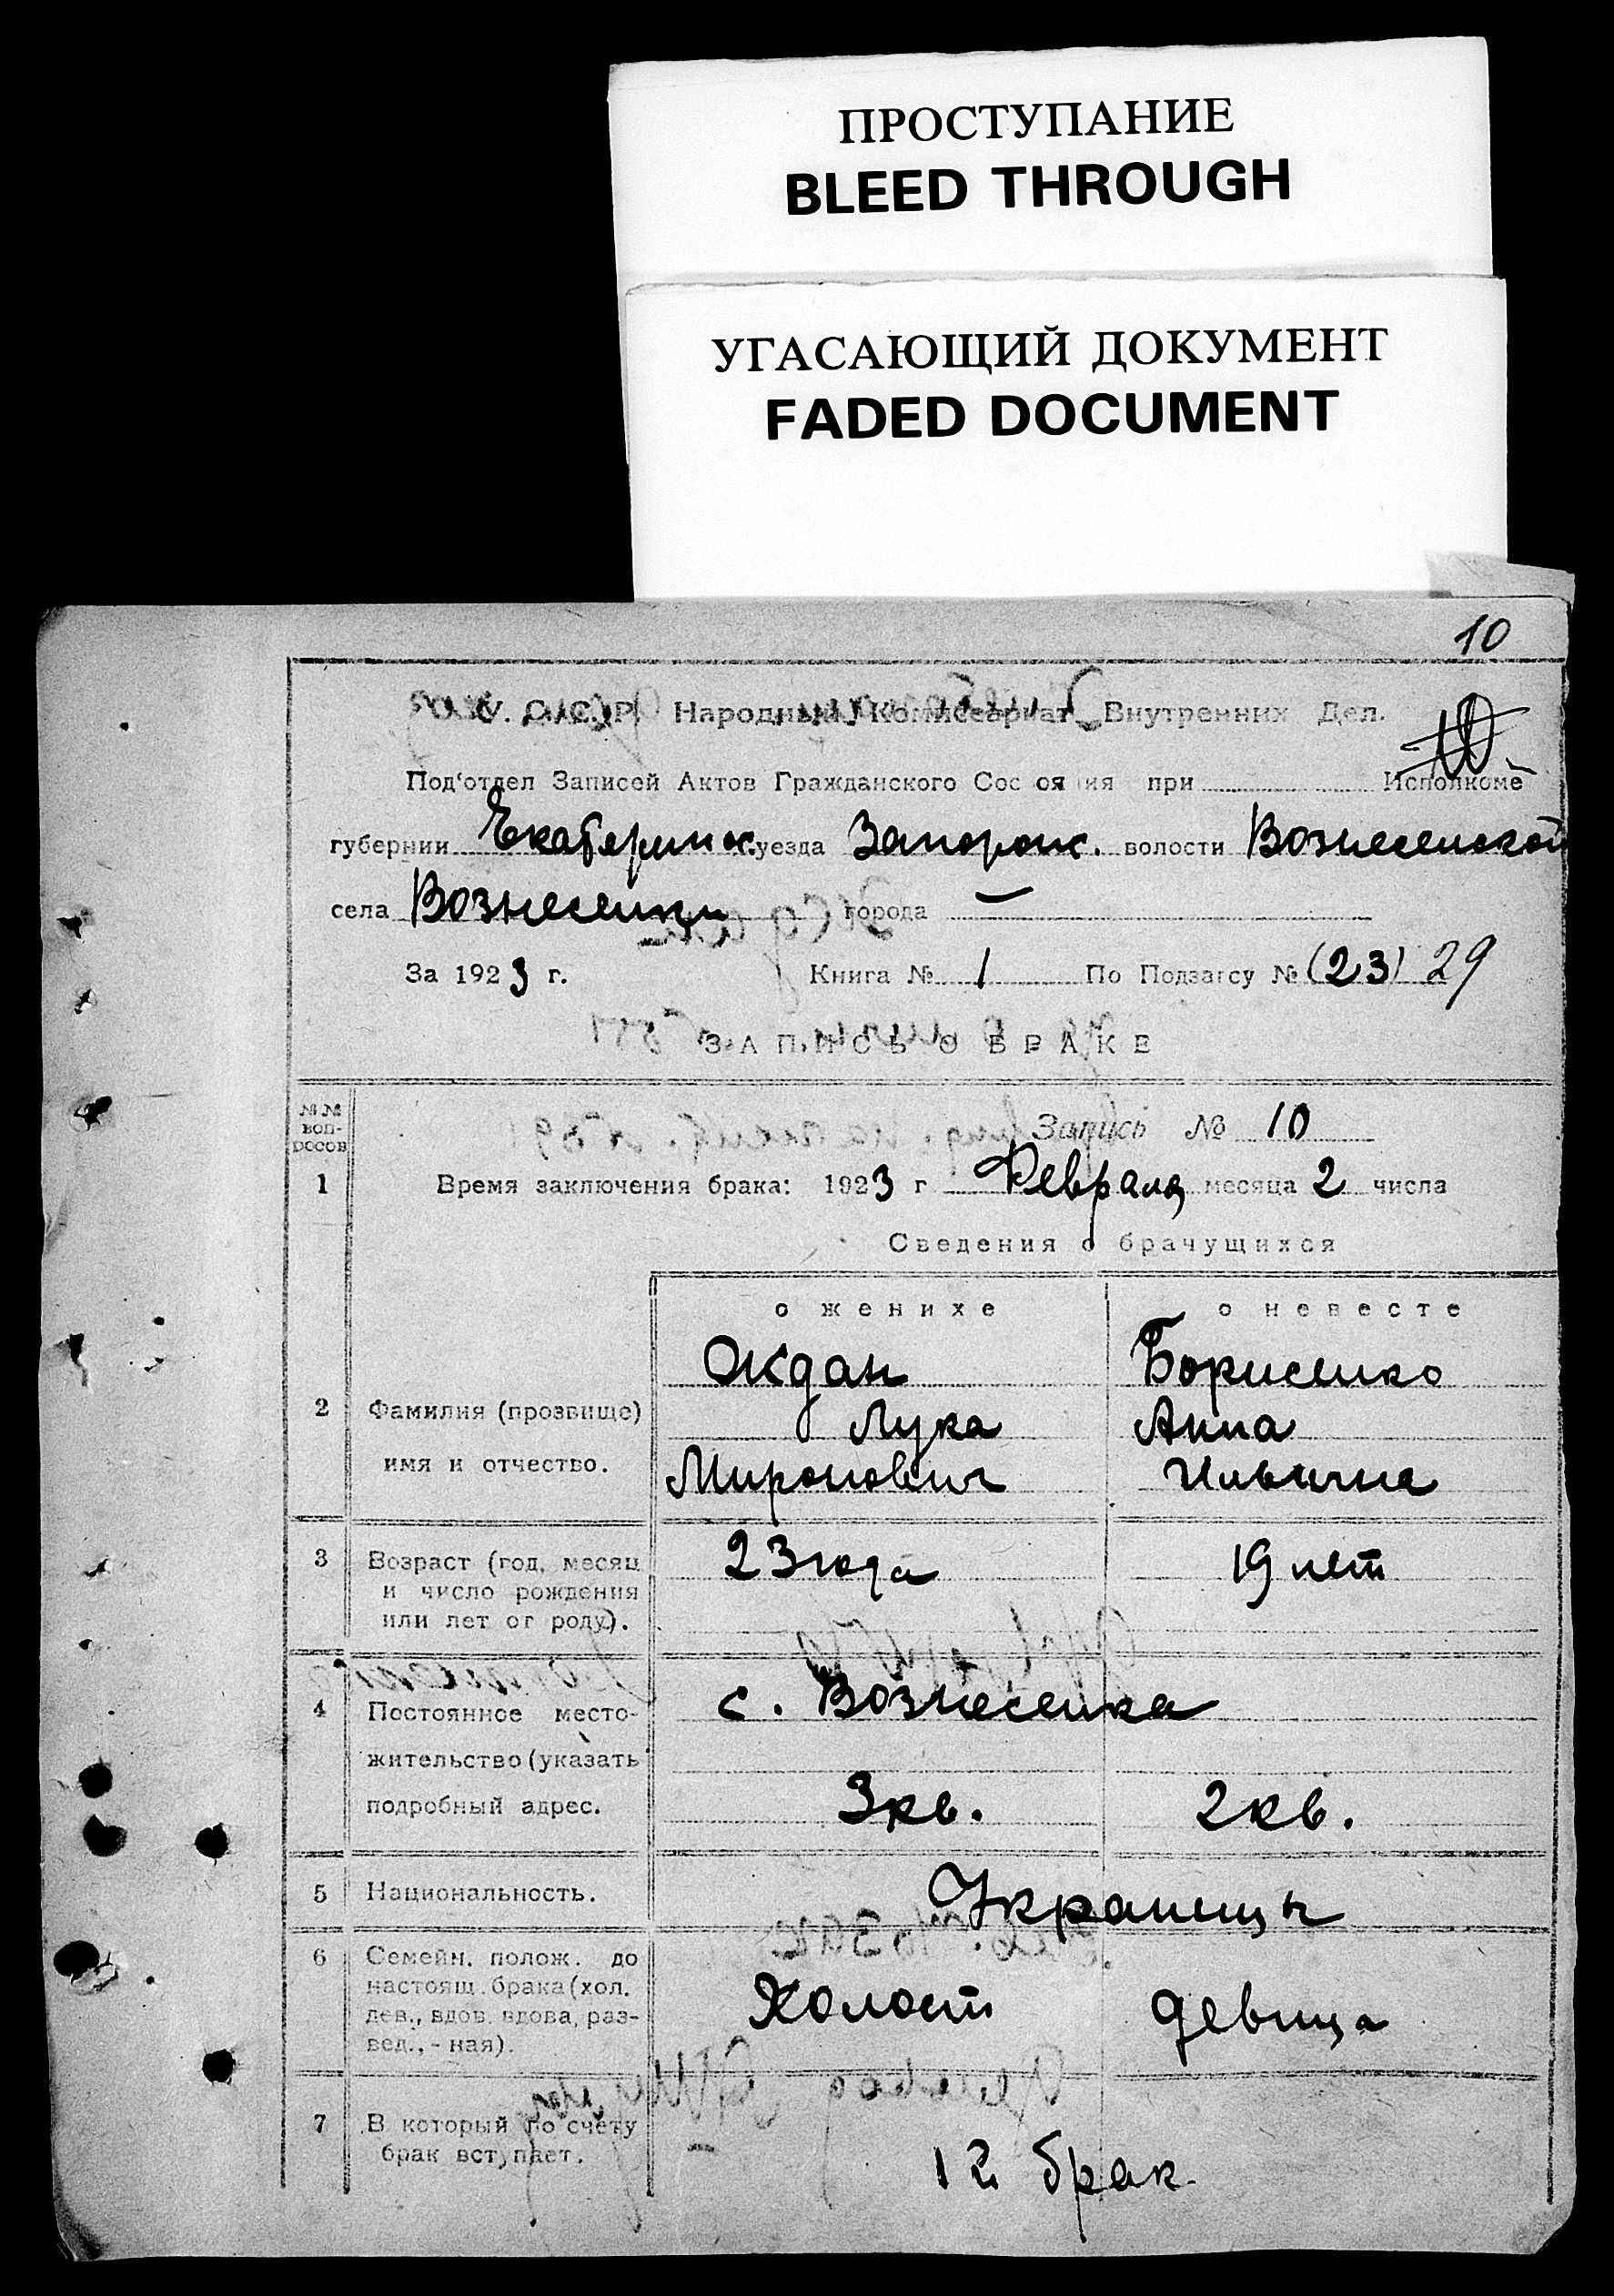 ПРОСТУПАНИЕ
BLEED THROUGH
УГАСАЮЩИЙ ДОКУМЕНТ
FADED DOCUMENT
10
У. С. С. Р. Народный Комиссариат Внутренних Дел.
10
Под'отдел Записей Актов Гражданского Состояния при Исполкоме
губернии Екатеринос. уезда Запорож. волости Вознесенской
села Вознесенки города —
За 1923 г. Книга № 1 По Подзагсу № (23) 29
ЗАПИСЬ О БРАКЕ
№№ воп-
росов
Запись № 10
1 Время заключения брака: 1923 г Февраля месяца 2 числа
Сведения о брачущихся
о женихе о невесте
Ождан Борисенко
2 Фамилия (прозвище) Лука Анна
имя и отчество. Миронович Ильична
3 Возраст (год, месяц 23 года 19 лет
и число рождения
или лет от роду).
4 Постоянное место- с. Вознесенка
жительство (указать
подробный адрес. 3 кв. 2 кв.
5 Национальность. Украинцы
6 Семейн. полож. до
настоящ. брака (хол. Холост девица
дев., вдов. вдова, раз-
вед., - ная).
7 В который по счету
брак вступает. 1й брак